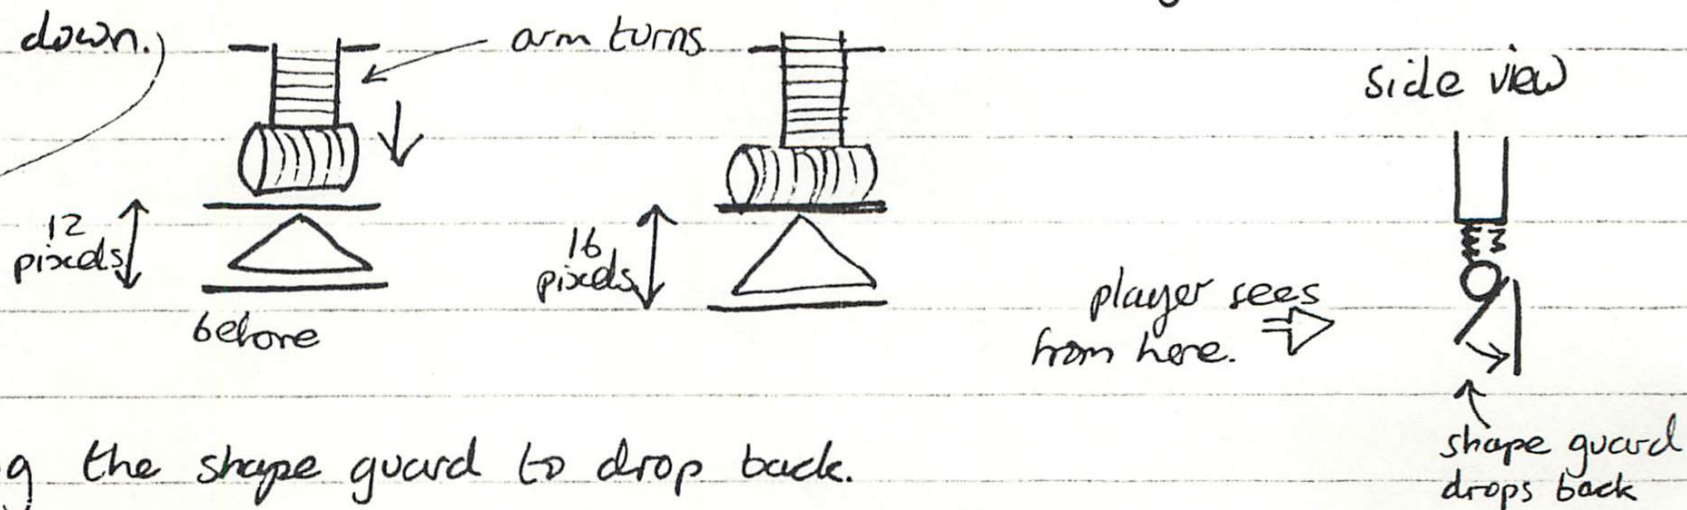 down.
arm turns
side view
12
pixels
16
pixels
before
player sees
from here.
shape guard
drops back
g the shape guard to drop back.